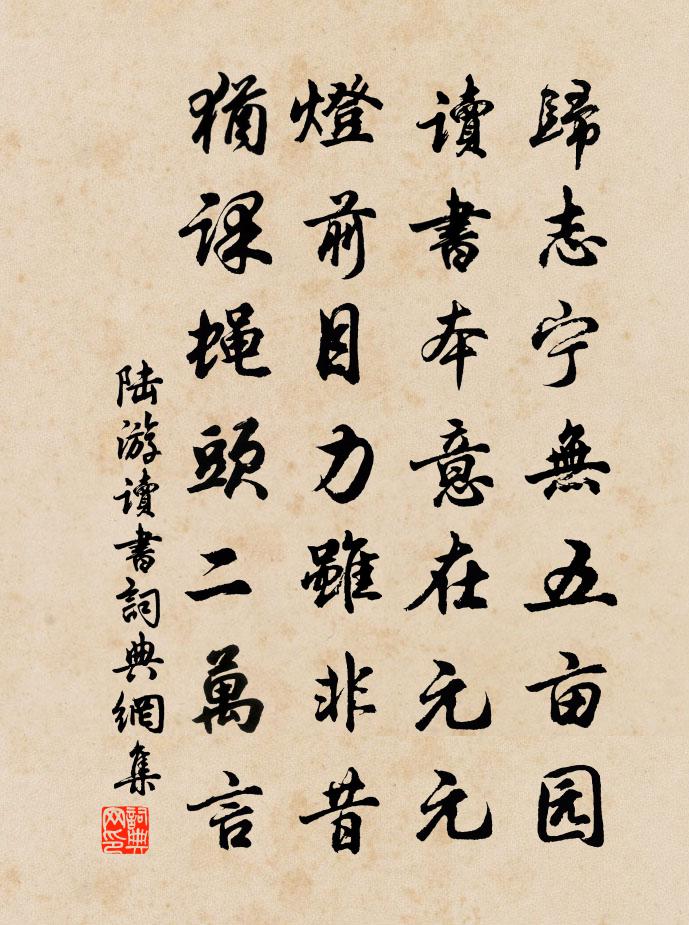 歸志宁無五亩园
讀書本意在元元
燈前目力雖非昔
猶課蝇頭二萬言
陆游讀書詞典網集
詞典网印